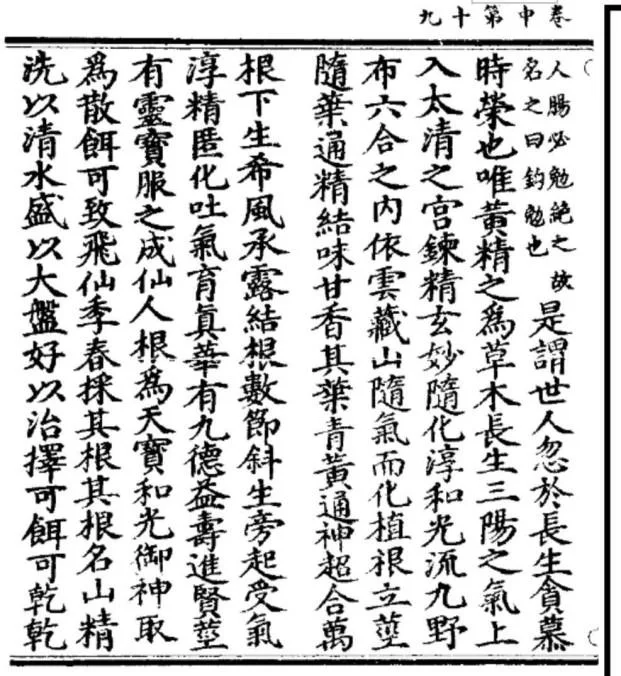 卷中第十九
人腸必勉絶之故
名之曰鈎勉也
是謂世人忽於長生貪慕
時榮也唯黃精之為草木長生三陽之氣上
入太清之宫鍊精玄妙隨化淳和光流九野
布六合之内依雲藏山隨氣而化植根立莖
隨葉通精結味甘香其葉青黃通神超合萬
根下生希風承露結根數節斜生旁起受氣
淳精匿化吐氣育真華有九德益壽進賢莖
有靈寶服之成仙人根為天寶和光御神取
為散餌可致飛仙季春採其根其根名山精
洗以清水盛以大盤好以治擇可餌可乾乾